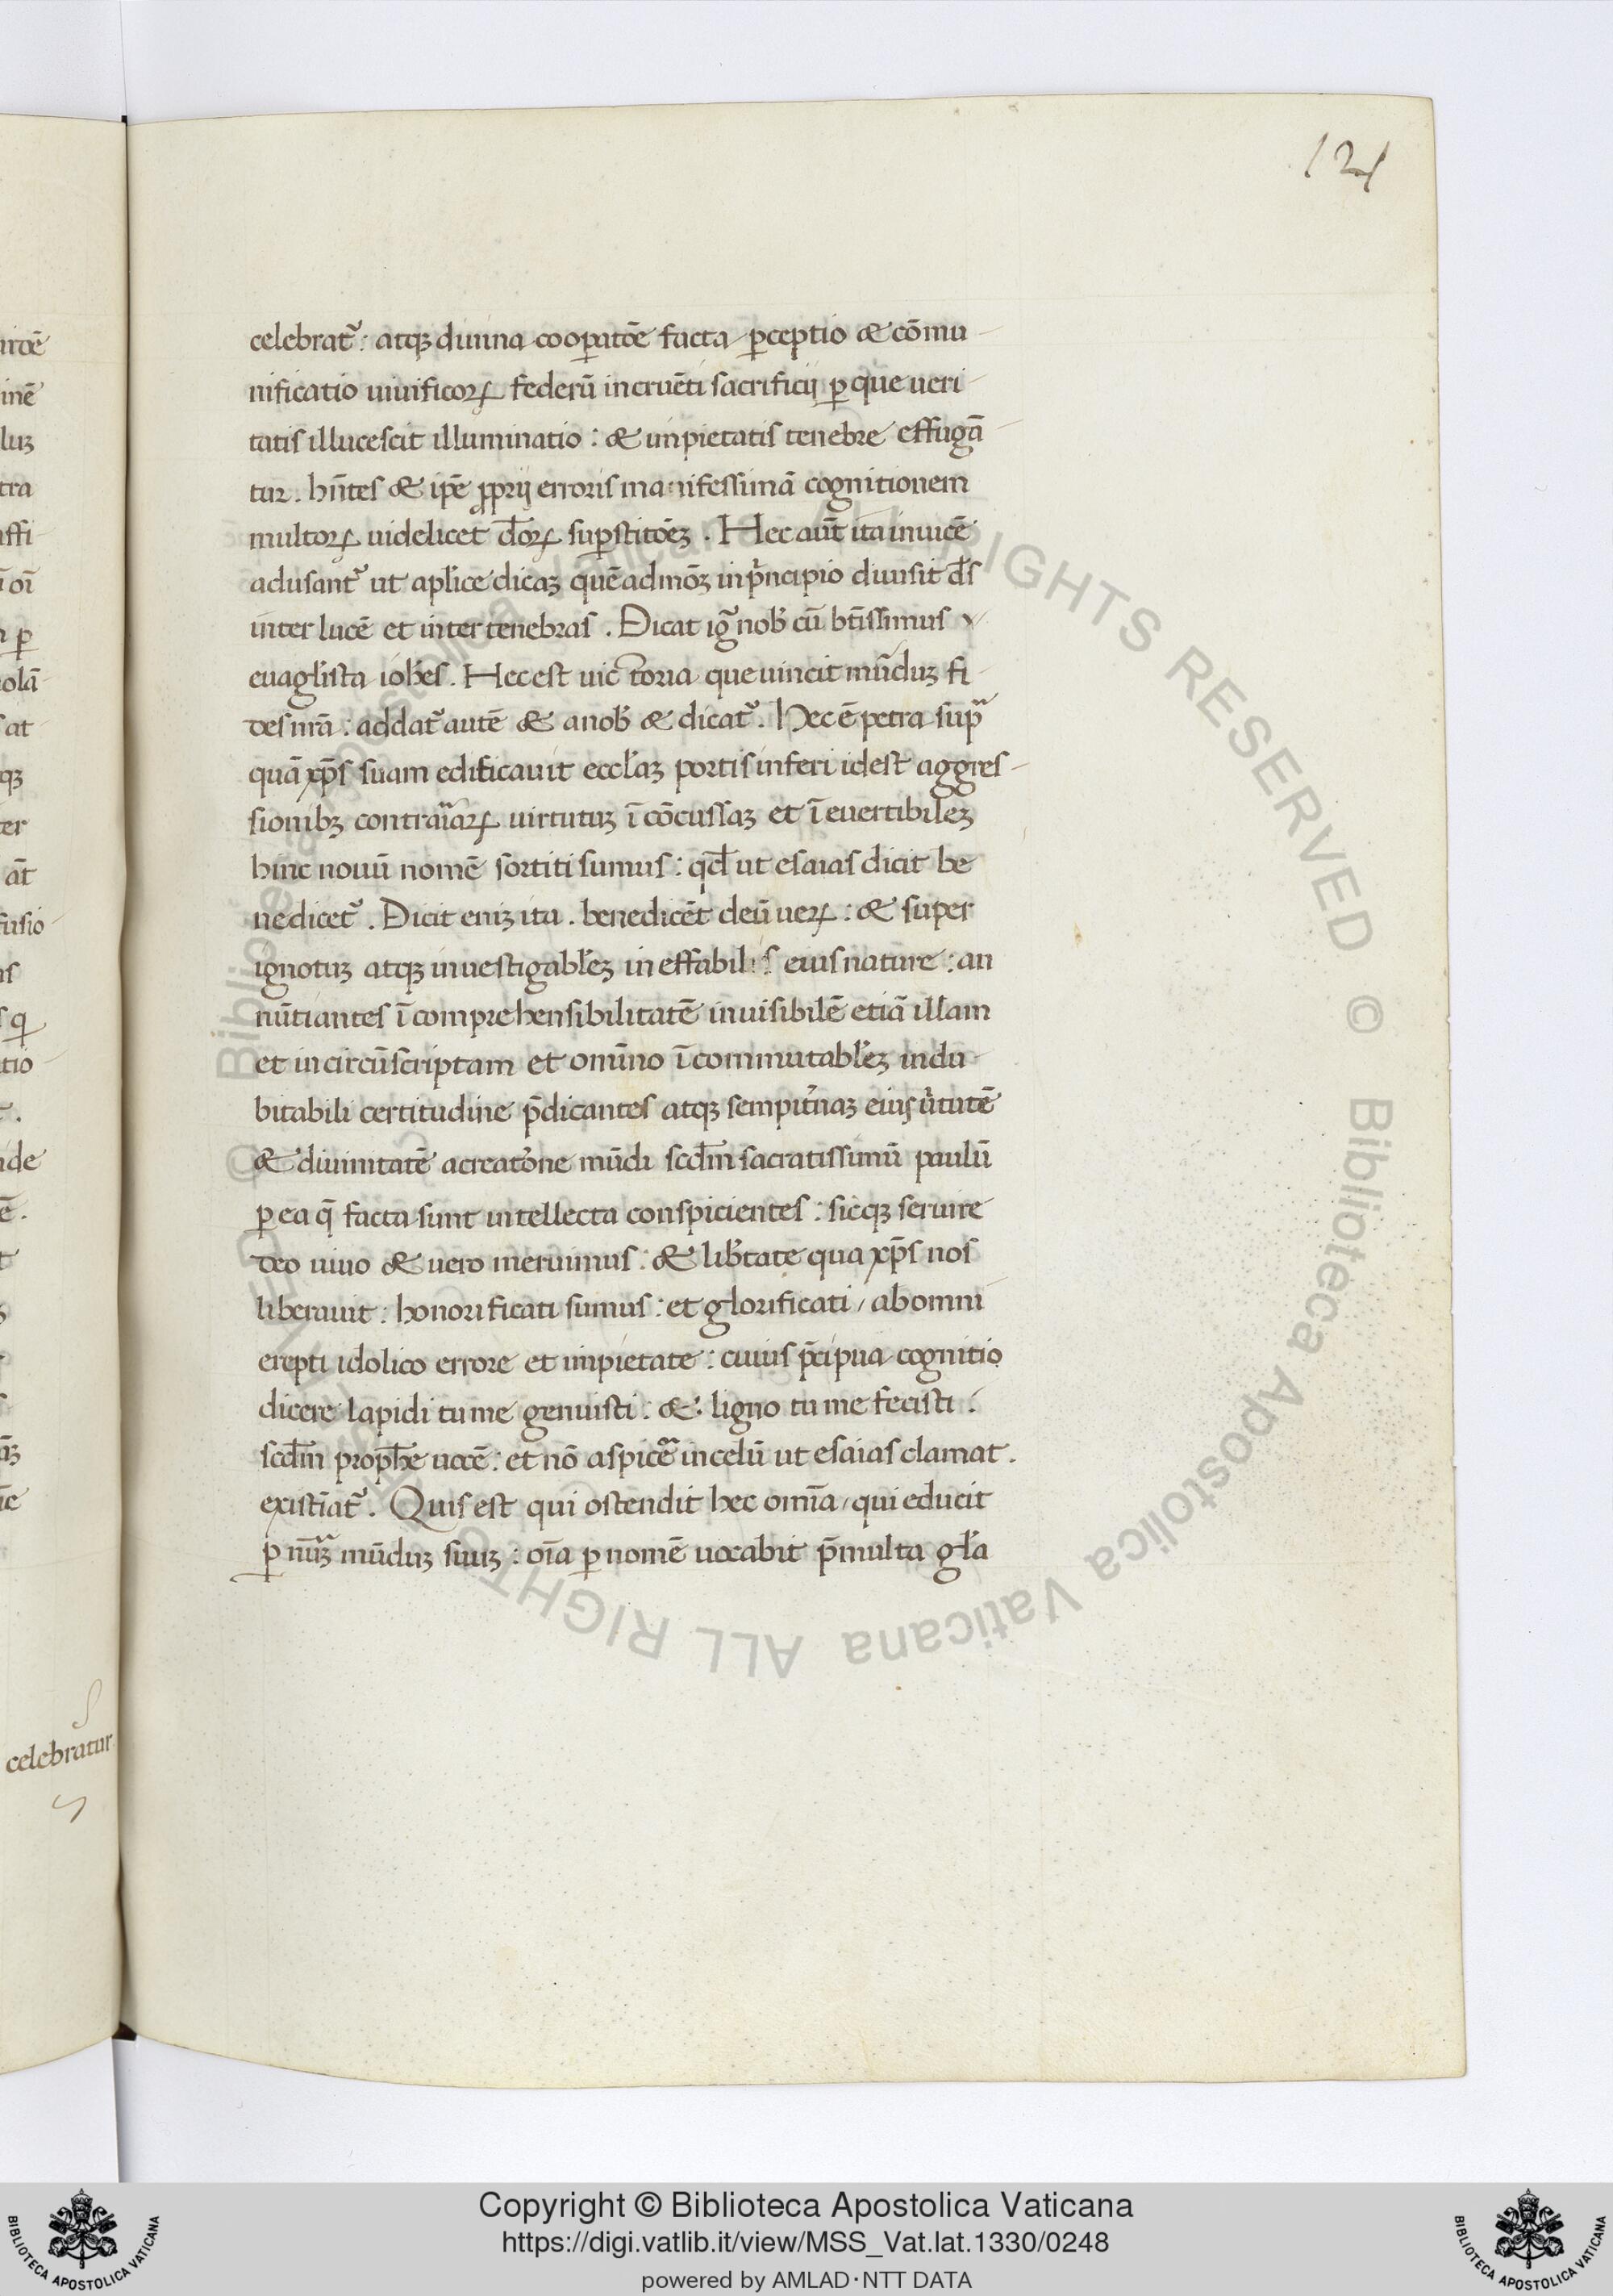 121
celebratᷣ: atqꝫ diuina cooꝑatōe facta ꝑceptio & cōmu-
nificatio uiuificoꝝ federū incruēti sacrificij ꝑ que ueri-
tatis illucescit illuminatio: & impietatis tenebre effugā-
tur. hn̄tes & ip̄e ꝓprij erroris manifessimā cognitionem
multoꝝ uidelicet d̄oꝝ suꝑstitōeꝫ. Hec aūt ita inuicē
adusantᷣ ut apl̓ice dicaꝫ quēadmōꝫ in pͥncipio diuisit d̄s
inter lucē et inter tenebras. Dicat igᷓ nob̓ cū bt̄issimus
euagl̓ista ioh̓es. Hec est uictoria que uincit mūduꝫ fi-
des nr̄a: addatᷣ autē & a nob̓ & dicatᷣ. Hec ē petra supᷓ
quā xp̄s suam edificauit eccl̓aꝫ portis inferi idest aggres-
sionibꝫ contraᷓiaꝝ uirtutuꝫ ī cōcussaꝫ et ī euertibileꝫ
hinc nouū nomē sortiti sumus: qd̄ ut esaias dicit be
nedicetᷣ. Dicit eniꝫ ita. benedicēt deū ueꝝ: & super
ignotuꝫ atqꝫ inuestigabl̓eꝫ ineffabilis eius nature: an
nūtiantes ī comprehensibilitatē inuisibilē etiā illam
et incircūscriptam et omīno ī commutabl̓eꝫ indu-
bitabili certitudine p̄dicantes atqꝫ sempit̓naꝫ eiꝰ uͥtutē
& diuinitatē a creatōne mūdi scd̄m sacratissimū paulū
ꝑ ea q̄ facta sunt intellecta conspicientes: sicqꝫ seruire
deo uiuo & uero meruimus: & lib̓tate qua xp̄s nos
liberauit: honorificati sumus: et glorificati / ab omni
erepti idolico errore et impietate: cuius p̄cipua cognitio
dicere lapidi tu me genuisti: & ligno tu me fecisti:
scd̄m proph̄e uocē: et nō aspicēᷓ in celū ut esaias clamat.
existīatᷣ. Quis est qui ostendit hec omīa / qui educit
ꝑ nūꝫ mūduꝫ suuꝫ: oīa ꝑ nomē uocabit p̄ multa gl̓a
celebratur
Copyright © Biblioteca Apostolica Vaticana
https://digi.vatlib.it/view/MSS_Vat.lat.1330/0248
powered by AMLAD·NTT DATA
BIBLIOTECA APOSTOLICA VATICANA
BIBLIOTECA APOSTOLICA VATICANA
© Biblioteca Apostolica Vaticana ALL RIGHTS RESERVED © Biblioteca Apostolica Vaticana ALL RIGHTS RESERVED